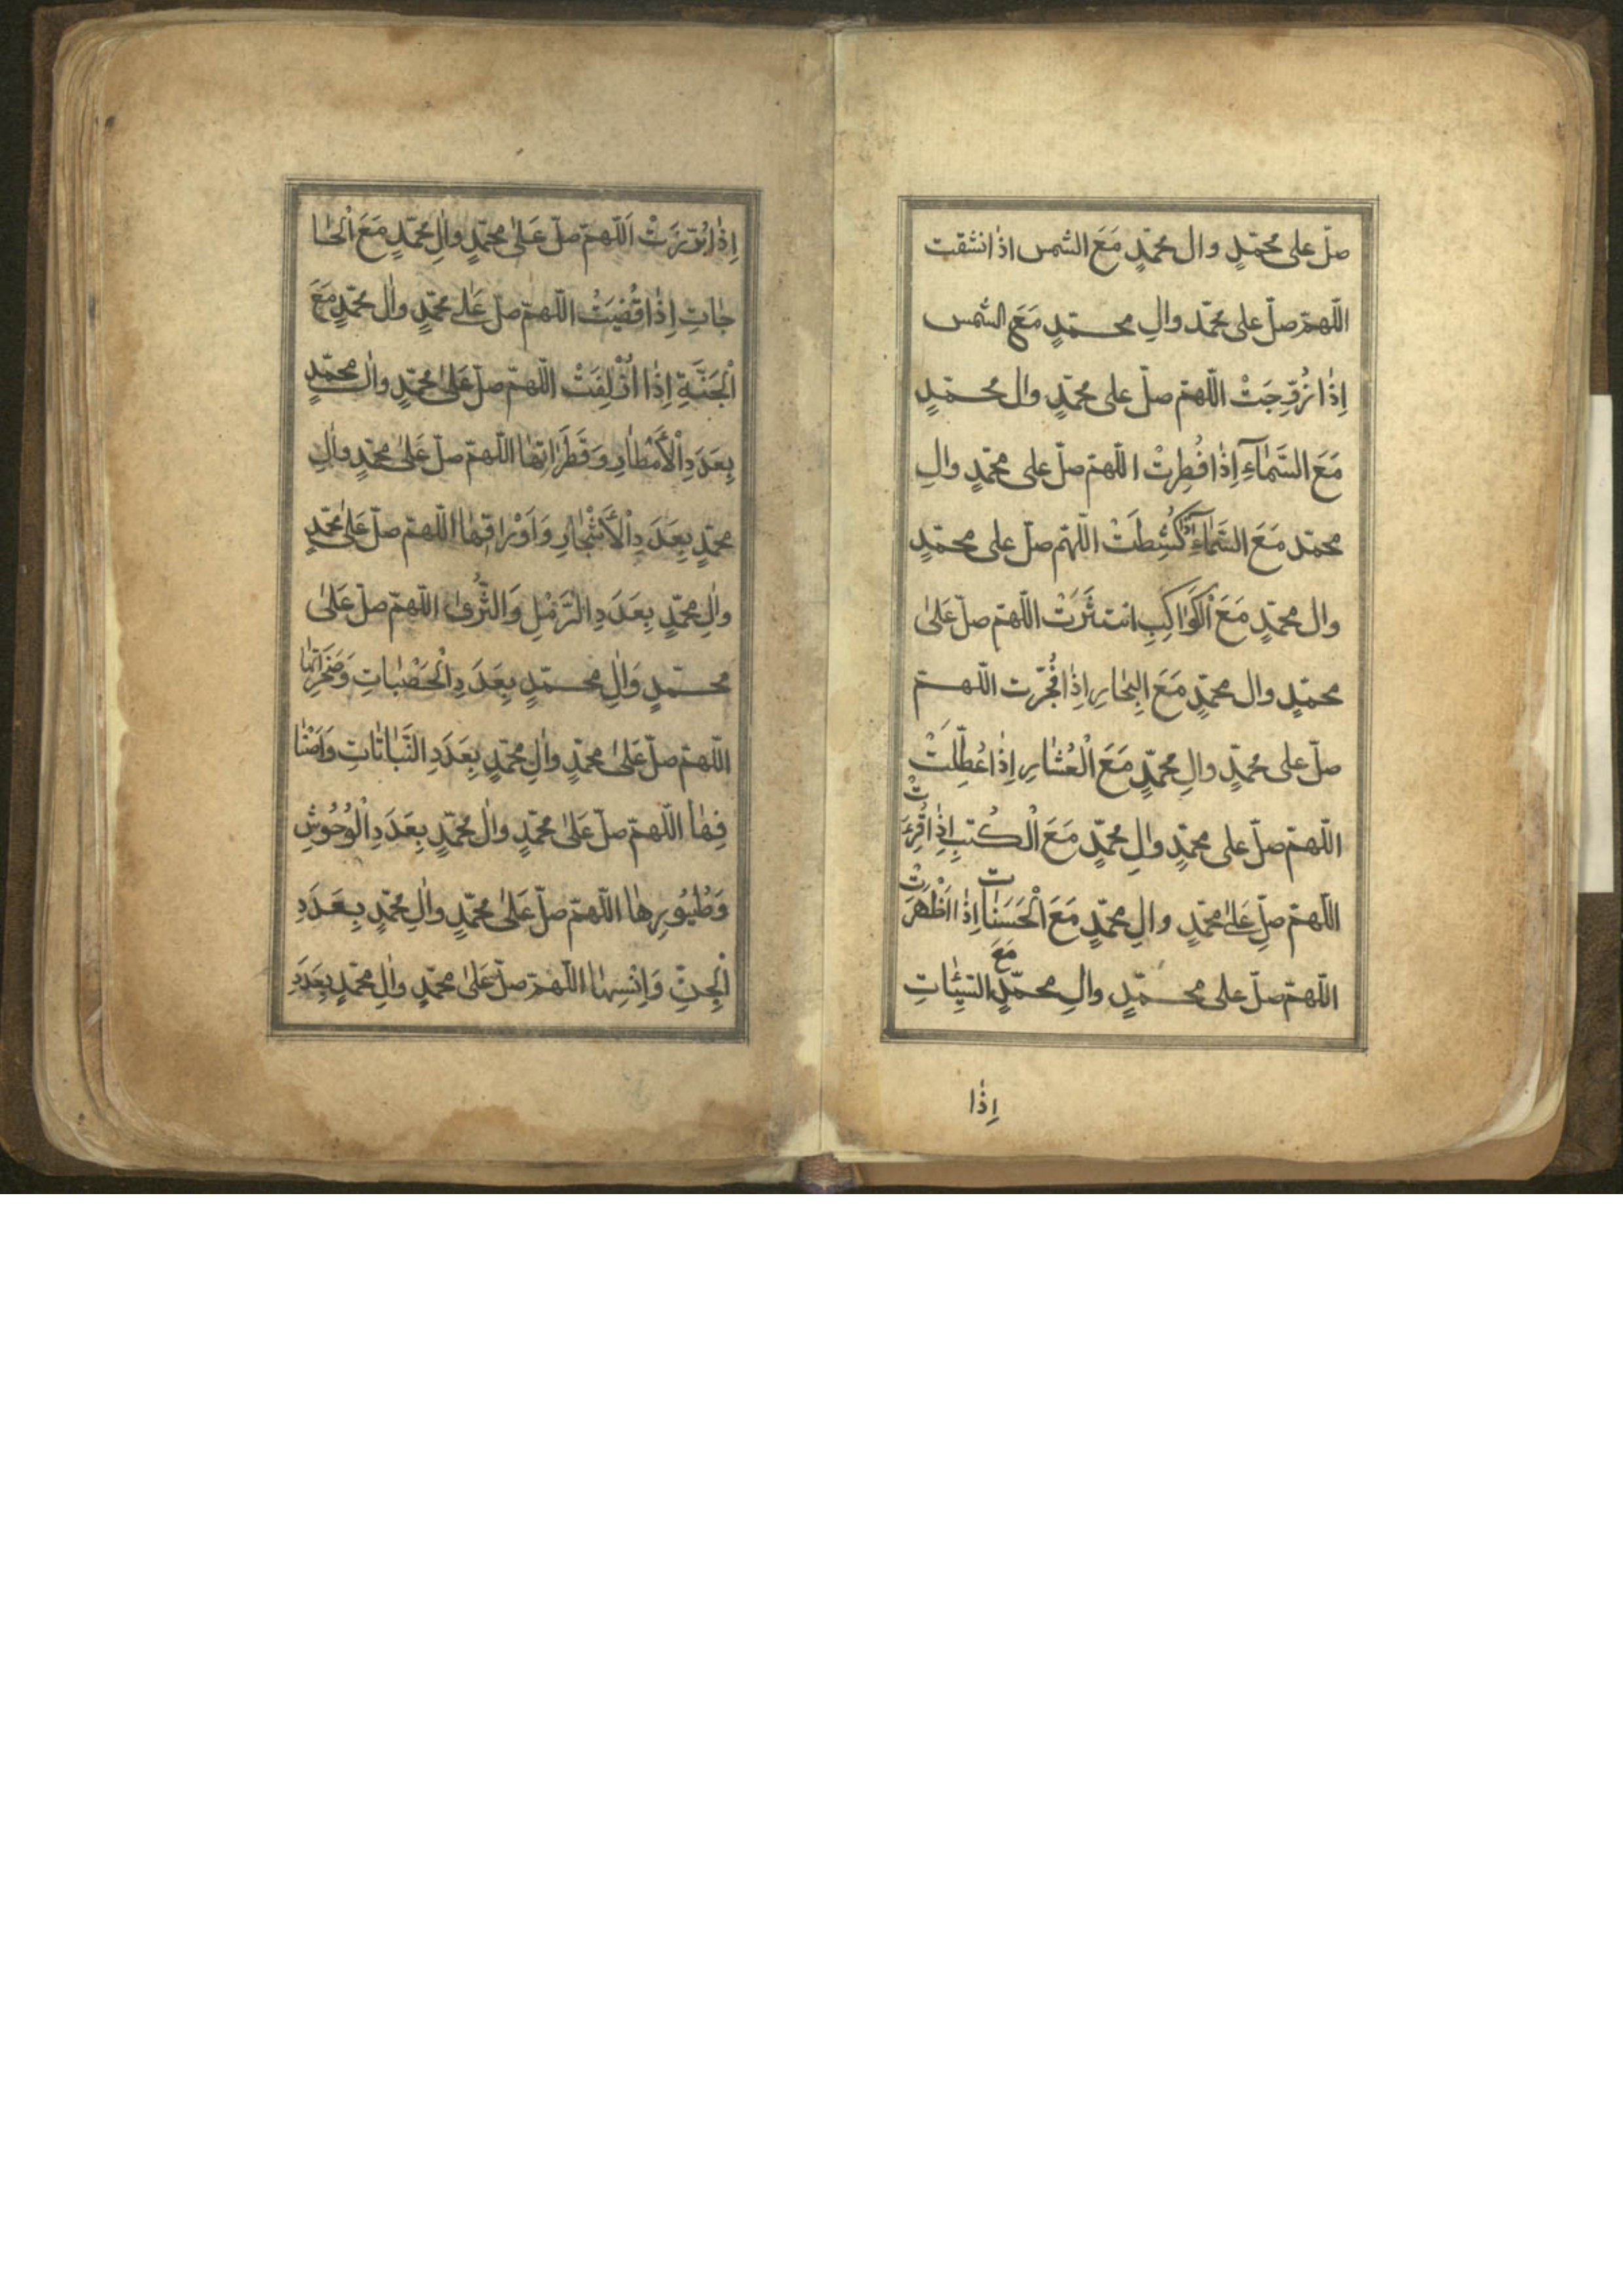 صلّ على محمّدٍ وال محمّدٍ مَعَ الشمس اذا انشقت
اللّهمّ صلّ على محمّد والِ محمّدٍ مَعَ الشمس
اِذٰا زُوِّجَتْ اللّهمّ صلّ على محمّدٍ وال محمّدٍ
مَعَ السَّمٰآءِ اِذٰا فُطِرتْ اللّهمّ صلّ على محمّدٍ والِ
محمّد مَعَ السَّمٰآءِ اِذٰا كُشِطَتْ اللّهمّ صلّ على محمّدٍ
وال محمّدٍ مَعَ اْلكَوٰاكِبِ انتثَرَتْ اللّهمّ صلّ عَلىٰ
محمّدٍ وال محمّدٍ مَعَ الْبِحٰارِ اِذٰا فُجِّرت اللّهمّ
صلّ على محمّدٍ والِ محمّدٍ مَعَ الْعُشٰارِ اِذٰا عُطِّلَتْ
اللّهمّ صلّ على محمّدٍ والِ محمّدٍ مَعَ الْكُتبِ اِذٰا قُرِءَتْ
اللّهمّ صلِّ عَلىٰ محمّدٍ والِ محمّدٍ مَعَ الْحَسَنٰات اِذٰا اَظْهَرَتْ
اللّهمّ صلّ على محمّدٍ والِ محمّدٍ مَعَ السَّيِّئٰاتِ
اِذٰا
اِذٰا اللّهمّ صلّ عَلىٰ محمّدٍ واٰلِ محمّدٍ مَعَ الْحٰا
جٰاتِ اِذٰا قُضِيَتْ اللّهمّ صلّ عَلىٰ محمّدٍ واٰل محمّدٍ مَعَ
الْجَنَّةِ اِذٰا اُزْلِفَتْ اللّهمّ صلّ عَلىٰ محمّدٍ واٰل محمّدٍ
بِعَدَدِ اْلأَمْطٰارِ وَقَطَرٰاتِهٰا اللّهمّ صلّ عَلىٰ محمّدٍ واٰلِ
محمّدٍ بِعَدَدِ اْلأَشْجٰارِ وَاَوْرٰاقِهٰا اللّهمّ صلّ عَلىٰ محمّدٍ
واٰلِ محمّدٍ بِعَدَدِ الْرَّمْلِ وَالثَّرىٰ اللّهمّ صلّ عَلىٰ
محمّدٍ وَاٰلِ محمّدٍ بِعَدَدِ الْحَصْبٰاتِ وَصَخَرٰاتِهٰا
اللّهمّ صلّ عَلىٰ محمّدٍ واٰلِ محمّدٍ بِعَدَدِ النَّبٰاتٰاتِ وَاَصْنٰا
فِهٰا اللّهمّ صلّ عَلىٰ محمّدٍ واٰل محمّدٍ بِعَدَدِ الْوُحُوشِ
وَطُيُورِهٰا اللّهمّ صلّ عَلىٰ محمّدٍ واٰلِ محمّدٍ بِعَدَدِ
الْجِنِّ وَاِنْسِهٰا اللّهمّ صلّ عَلىٰ محمّدٍ واٰلِ محمّدٍ بِعَدَدِ